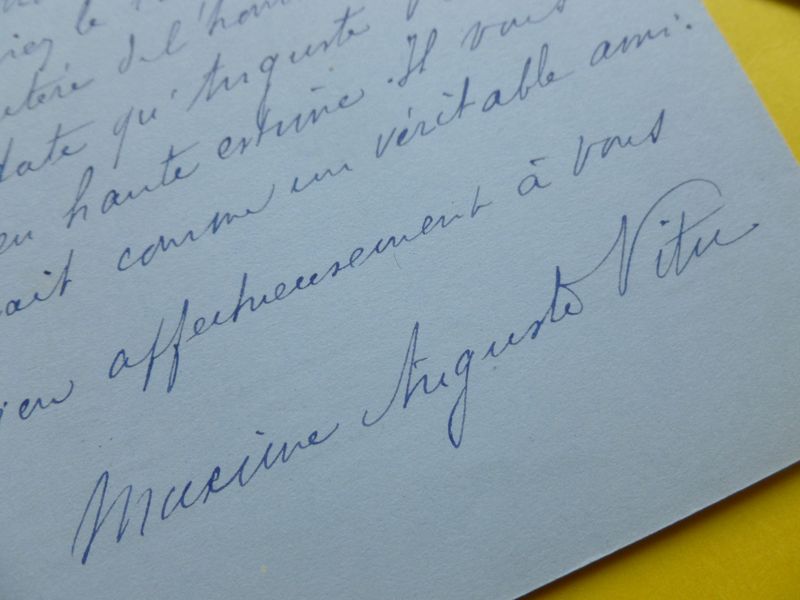 le
de l'hom
date qu'Auguste
en haute estime. Il vous
ait comme un véritable ami.
ien affectueusement à vous
Maxime Auguste Vitu